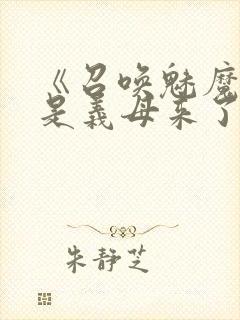 《召唤魅魔
是义母来了
朱静芝